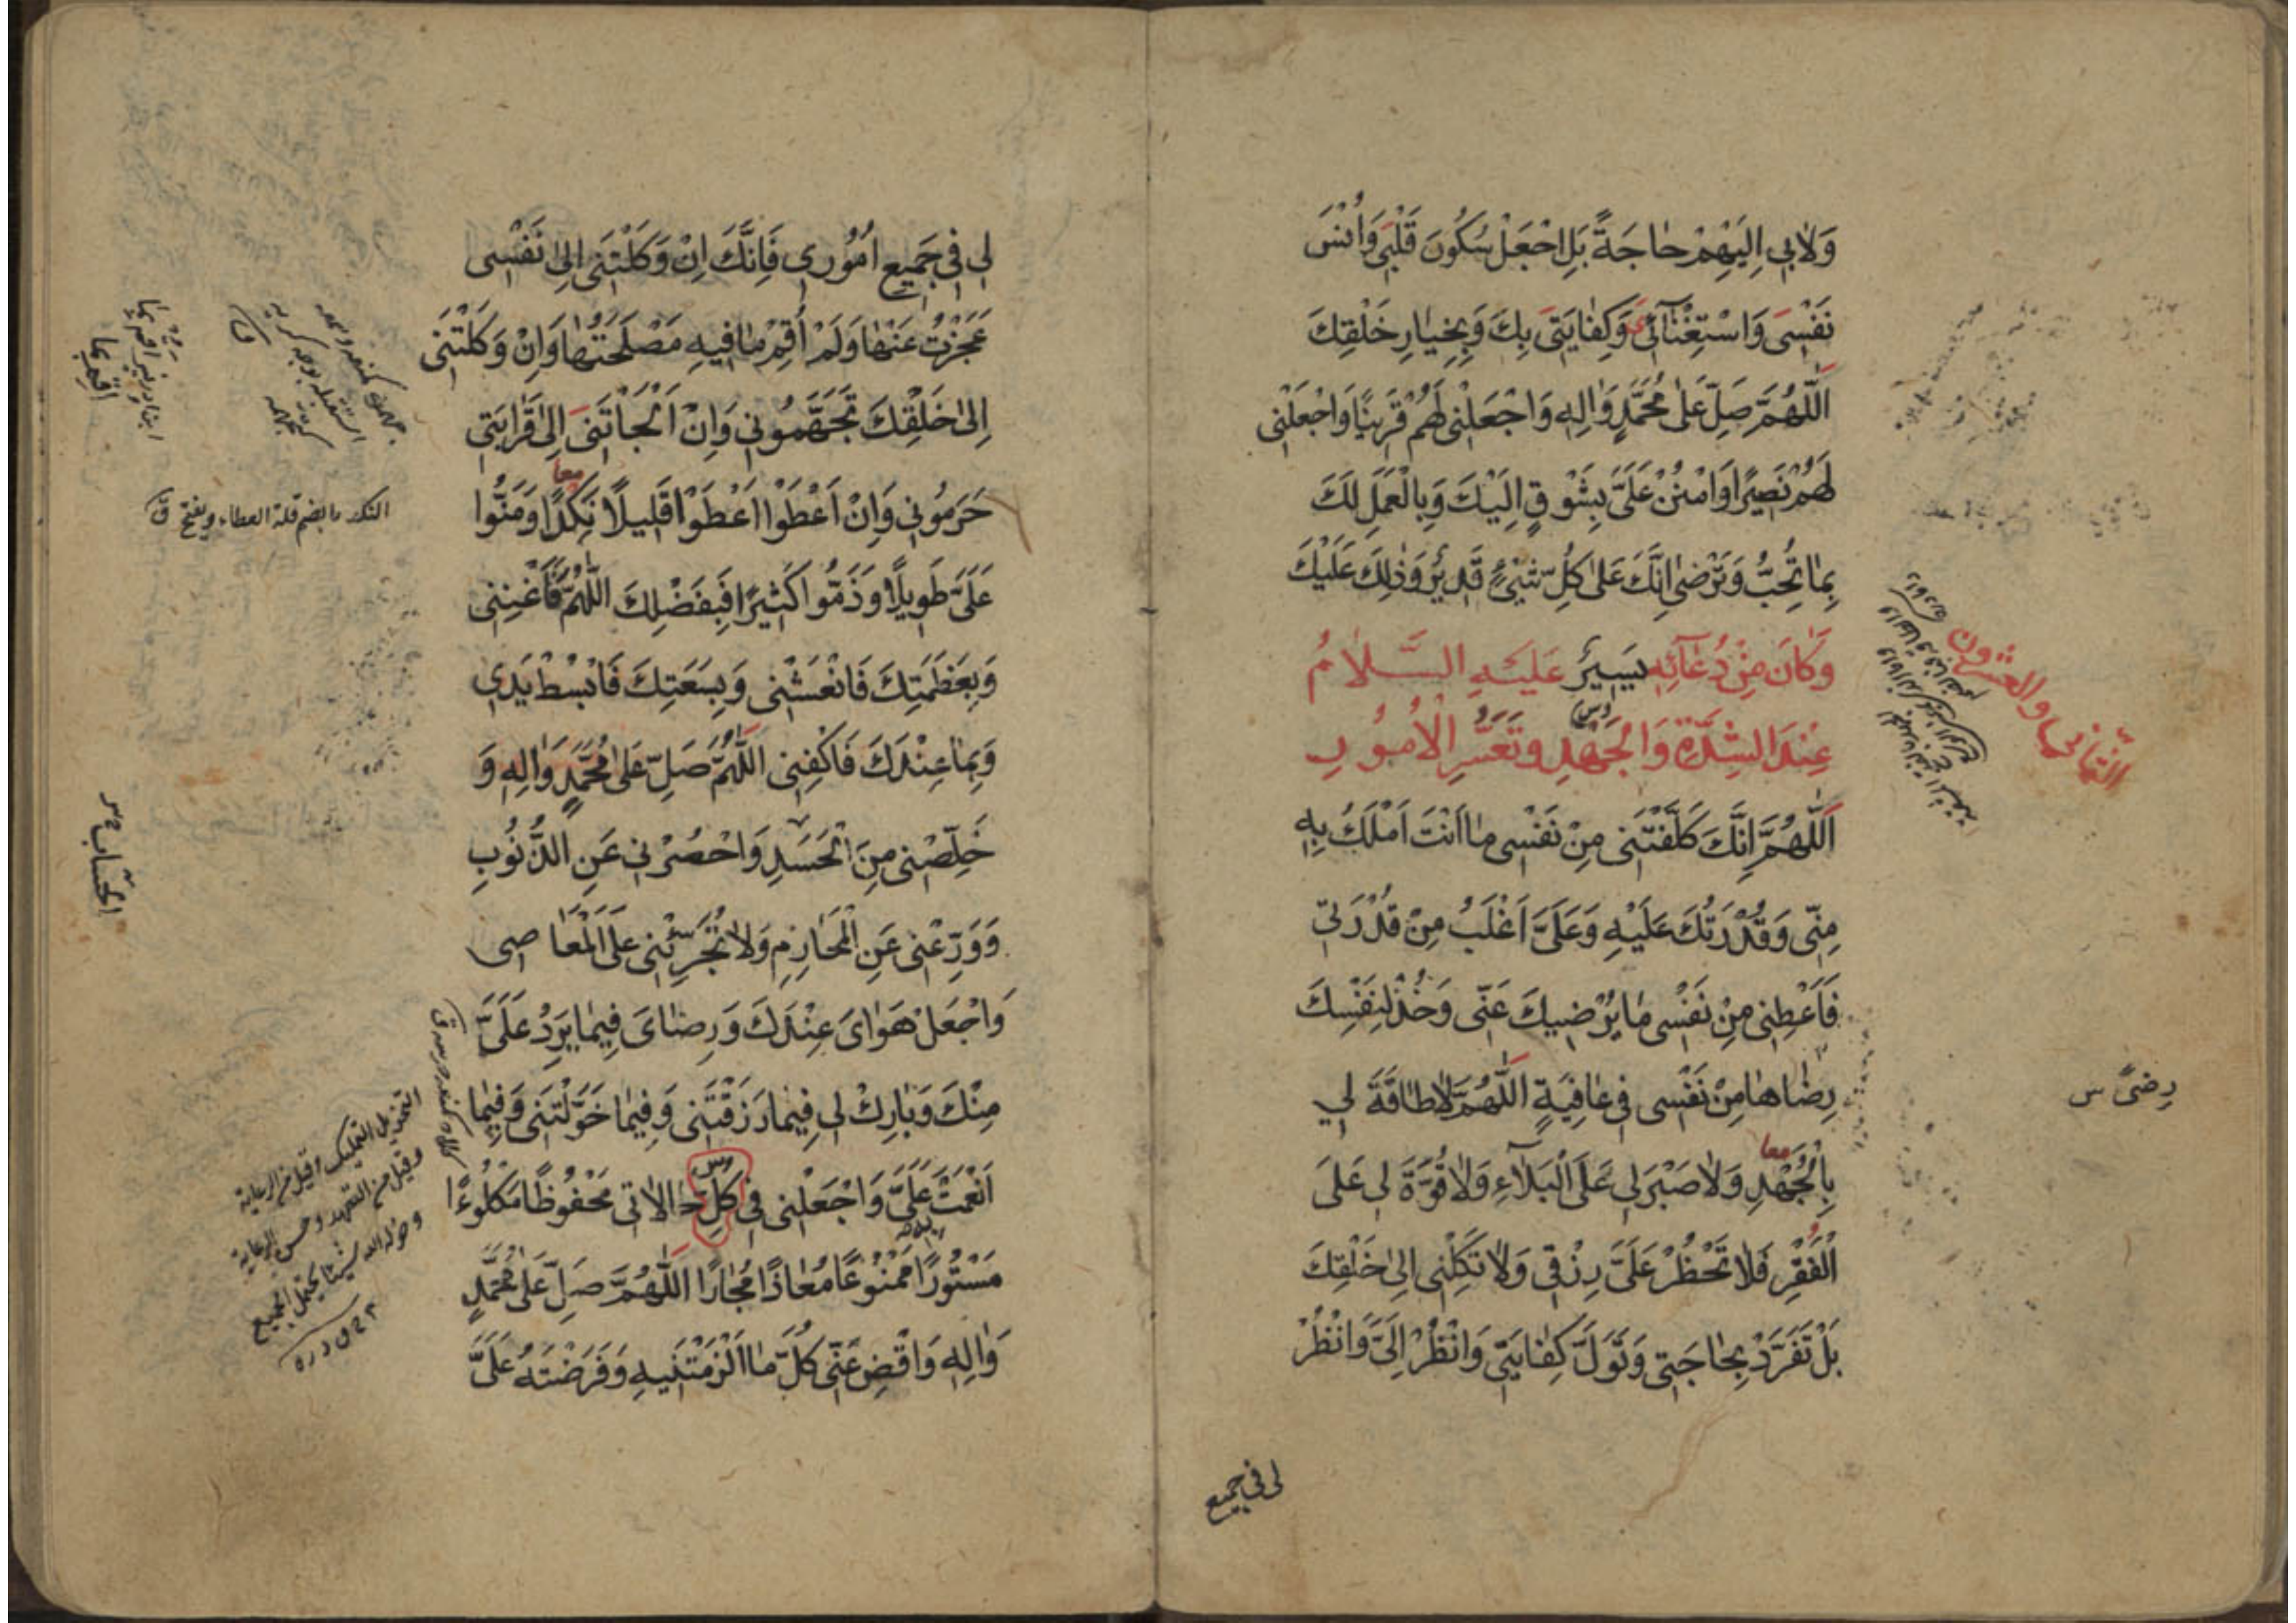 وَلَابِي اِلَيْهِمْ حَاجَةً بَلِ اجْعَلْ سُكُونَ قَلْبِي وَاُنْسَ
نَفْسِي وَاسْتِغْنَآئِي وَكِفَايَتِي بِكَ وَبِخِيَارِ خَلْقِكَ
اَللّٰهُمَّ صَلِّ عَلٰى مُحَمَّدٍ وَاٰلِهِ وَاجْعَلْنِي لَهُمْ قَرِينًا وَاجْعَلْنِي
لَهُمْ نَصِيرًا وَامْنُنْ عَلَيَّ بِشَوْقٍ اِلَيْكَ وَبِالْعَمَلِ لَكَ
بِمَا تُحِبُّ وَتَرْضٰى اِنَّكَ عَلٰى كُلِّ شَيْءٍ قَدِيرٌ وَذٰلِكَ عَلَيْكَ
الثاني والعشرون
وَكَانَ مِنْ دُعَآئِهِ يَسِيرٌ عَلَيْهِ السَّلَامُ
عِنْدَ الشِّدَّةِ وَالْجَهْدِ وَتَعَسُّرِ الْاُمُورِ
اَللّٰهُمَّ اِنَّكَ كَلَّفْتَنِي مِنْ نَفْسِي مَا اَنْتَ اَمْلَكُ بِهِ
مِنِّي وَقُدْرَتُكَ عَلَيْهِ وَعَلَيَّ اَغْلَبُ مِنْ قُدْرَتِي
فَاَعْطِنِي مِنْ نَفْسِي مَا يُرْضِيكَ عَنِّي وَخُذْ لِنَفْسِكَ
رِضَاهَا مِنْ نَفْسِي فِي عَافِيَةٍ اَللّٰهُمَّ لَا طَاقَةَ لِي
رِضًى س
بِالْجُهْدِ وَلَا صَبْرَ لِي عَلَى الْبَلَآءِ وَلَا قُوَّةَ لِي عَلَى
معا
الْفَقْرِ فَلَا تَحْظُرْ عَلَيَّ رِزْقِي وَلَا تَكِلْنِي اِلٰى خَلْقِكَ
بَلْ تَفَرَّدْ بِحَاجَتِي وَتَوَلَّ كِفَايَتِي وَانْظُرْ اِلَيَّ وَانْظُرْ
لی فی جمیع
لِي فِي جَمِيعِ اُمُورِي فَاِنَّكَ اِنْ وَكَلْتَنِي اِلٰى نَفْسِي
عَجَزْتُ عَنْهَا وَلَمْ اُقِمْ مَا فِيهِ مَصْلَحَتُهَا وَاِنْ وَكَلْتَنِي
اِلٰى خَلْقِكَ تَجَهَّمُونِي وَاِنْ اَلْجَاْتَنِي اِلٰى قَرَابَتِي
معا
حَرَمُونِي وَاِنْ اَعْطَوْا اَعْطَوْا قَلِيلًا نَكِدًا وَمَنُّوا
النكد بالضم قلة العطاء ويفتح ق
عَلَيَّ طَوِيلًا وَذَمُّوا كَثِيرًا فَبِفَضْلِكَ اللّٰهُمَّ فَاَغْنِنِي
وَبِعَظَمَتِكَ فَانْعَشْنِي وَبِسَعَتِكَ فَابْسُطْ يَدِي
وَبِمَا عِنْدَكَ فَاكْفِنِي اَللّٰهُمَّ صَلِّ عَلٰى مُحَمَّدٍ وَاٰلِهِ وَ
خَلِّصْنِي مِنَ الْحَسَدِ وَاحْصُرْنِي عَنِ الذُّنُوبِ
وَوَرِّعْنِي عَنِ الْمَحَارِمِ وَلَا تُجَرِّئْنِي عَلَى الْمَعَاصِي
وَاجْعَلْ هَوَايَ عِنْدَكَ وَرِضَايَ فِيمَا يَرِدُ عَلَيَّ
مِنْكَ وَبَارِكْ لِي فِيمَا رَزَقْتَنِي وَفِيمَا خَوَّلْتَنِي وَفِيمَا
اَنْعَمْتَ عَلَيَّ وَاجْعَلْنِي فِي كُلِّ حَالَاتِي مَحْفُوظًا مَكْلُوءًا
مَسْتُورًا مَمْنُوعًا مُعَاذًا مُجَارًا اَللّٰهُمَّ صَلِّ عَلٰى مُحَمَّدٍ
وَاٰلِهِ وَاقْضِ عَنِّي كُلَّ مَا اَلْزَمْتَنِيهِ وَفَرَضْتَهُ عَلَيَّ
التخويل التمليك وقيل من الرعاية
وقيل من التعهد وحسن الرعاية
وخوله الله شيئا يحتمل الجميع